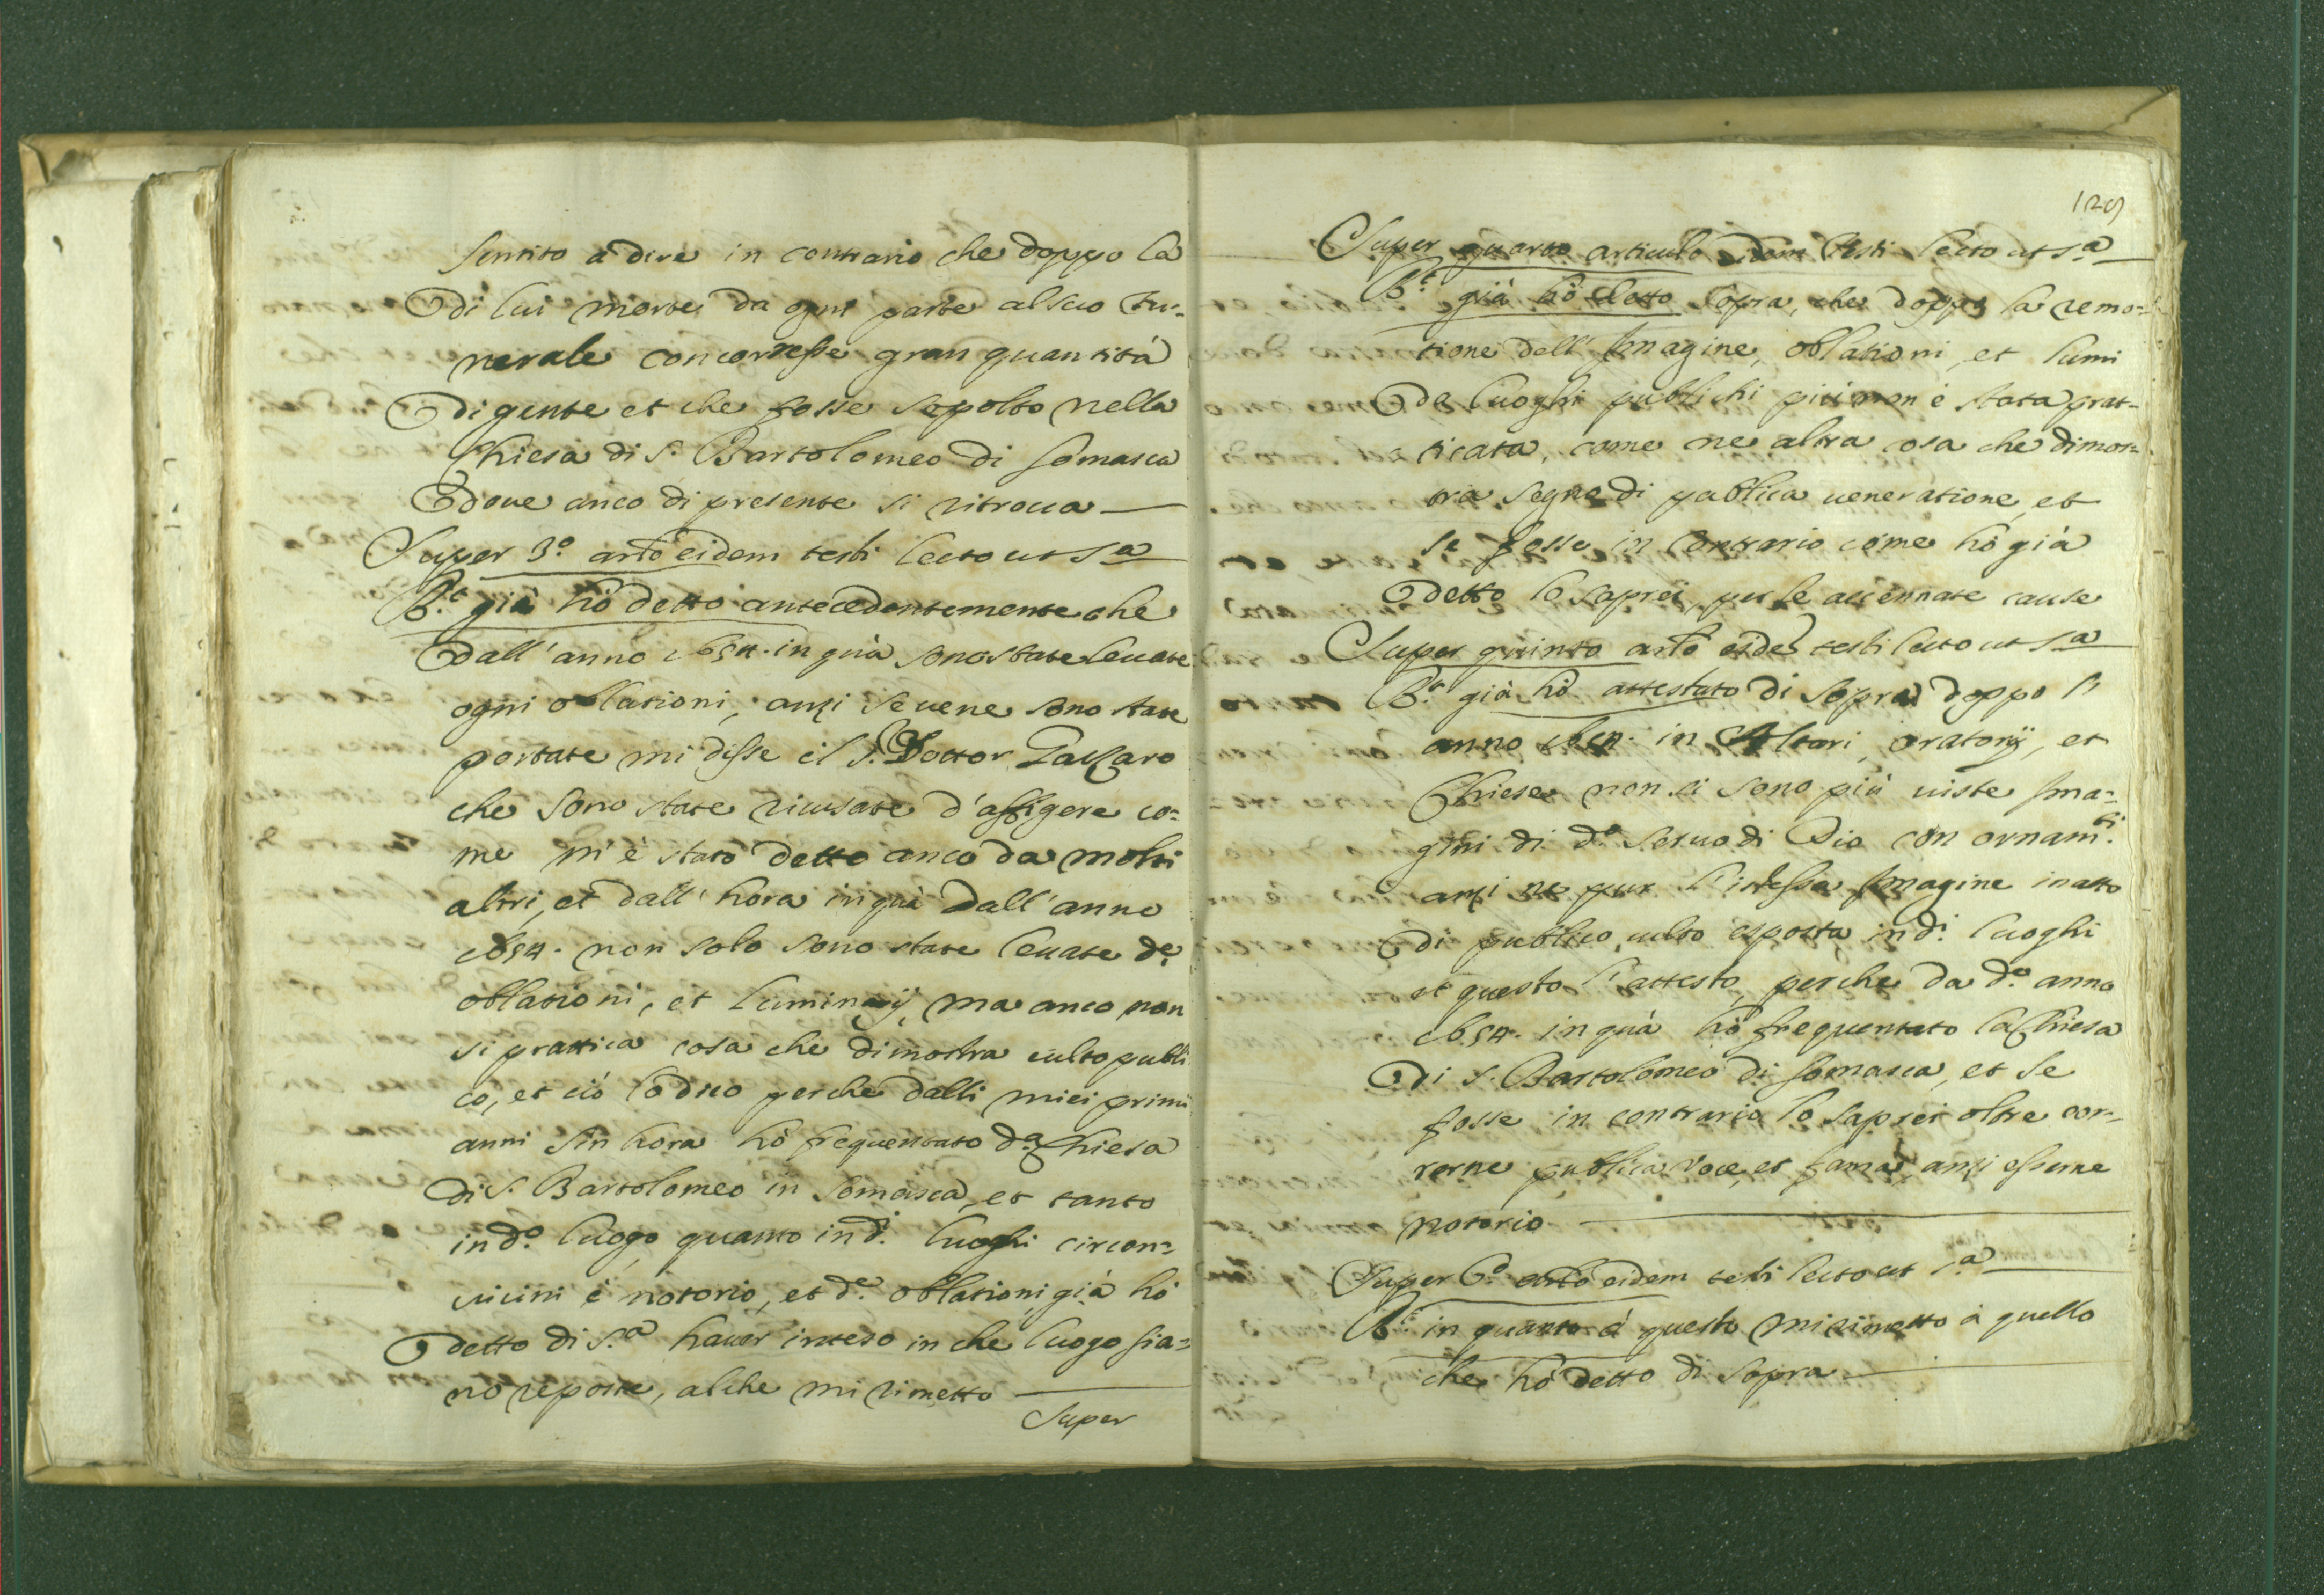 sentito à dire in contrario che doppo la
di lui morte, da ogni parte al suo fu-
nerale concorresse gran quantità
di gente et che fosse sepolto nella
Chiesa di S. Bartolomeo di Somasca
doue anco di presente si ritroua
Super 3.º artº eidem testi lecto ut s.ª
R.t già hò detto antecedentemente che
dall'anno 1654. in quà sono state leuate
ogni oblationi, anzi se uene sono state
portate mi disse il S. Dottor
che sono state ricusate d'affigere co-
me m'è stato detto anco da molti
altri, et dall'hora in quà dall'anno
1654. non solo sono state leuate d.e
oblationi, et luminarij, ma anco non
si prattica cosa che dimostra culto publi
co, et ciò lo dico perche dalli miei primi
anni sin hora hò frequentato d.ª Chiesa
di S. Bartolomeo in Somasca, et tanto
in d.º luogo quanto in d.i luoghi circon-
uicini è notorio, et d.e oblationi già hò
detto di s.ª hauer inteso in che luogo sia-
no reposte, alche mi rimetto
Super
129
Super quarto articulo eidem testi lecto ut s.ª
R.t già hò detto sopra, che doppo la remo-
tione dell'Imagine, oblationi, et lumi
da luoghi publichi più non è stata prat-
ticata, come ne altra cosa che dimos-
tra segno di publica ueneratione, et
se fosse in contrario come hò già
detto lo saprei, per le accennate cause
Super quinto artº eidē testi lecto ut s.ª
R.t già hò attestato di sopra doppo l'
anno 1654. in Altari, oratorij, et
Chiese non si sono più uiste Ima-
gini di d.º seruo di Dio con ornam.ti
anzi ne pur l'istessa Imagine in atto
di publico culto esposta in d.i luoghi
et questo l'attesto, perche da d.º anno
1654. in quà hò frequentato la Chiesa
di S. Bartolomeo di Somasca, et se
fosse in contrario lo saprei oltre cor-
rerne publica voce, et fama, anzi esserne
notorio
Super 6.º artº eidem testi lecto ut s.ª
R.t in quanto à questo mi rimetto à quello
che hò detto di sopra